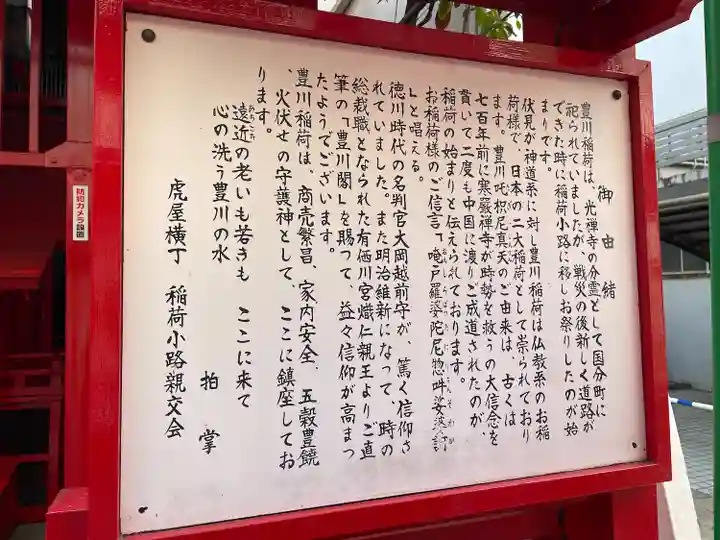 御由緒
豊川稲荷は、光禅寺の分霊として国分町に
祀られていましたが、戦災の後新しく道路が
できた時に稲荷小路に移しお祭りしたのが始
まりです。
伏見が神道系に対し豊川稲荷は仏教系のお稲
荷様で、日本の二大稲荷として崇られており
ます。豊川吒枳尼真天のご由来は、古くは
七百年前に寒巌禅寺が時勢を救うの大信念を
貫いて二度も中国に渡りご成道されたのが、
稲荷の始まりと伝えられております。
お稲荷様のご信言「唵尸羅婆陀尼惣吽娑婆訶
」と唱える。
徳川時代の名判官大岡越前守が、篤く信仰さ
れていました。また明治維新になって、時の
総裁職となられた有栖川宮熾仁親王よりご直
筆の「豊川閣」を賜って、益々信仰が高まっ
たようでございます。
豊川稲荷は、商売繁昌、家内安全、五穀豊饒
、火伏せの守護神として、ここに鎮座してお
ります。
遠近の老いも若きも ここに来て
心の洗う豊川の水
拍掌
虎屋横丁 稲荷小路親交会
防犯カメラ設置